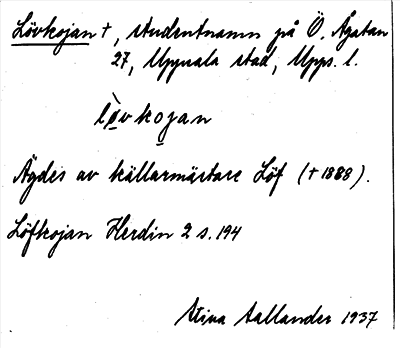 Lövkojan +, studentnamn på Ö. Ågatan
27, Uppsala stad, Upps. l.
lö̀vkojan
Ägdes av källarmästare Löf (+ 1888).
Löfkojan Herdin 2 s. 194
Stina Sallander 1937